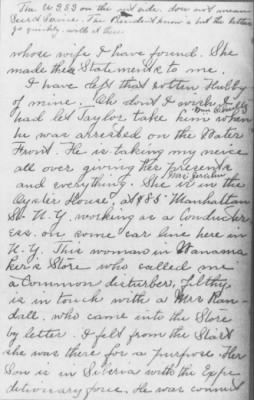 The U 953 on the out side does not mean
Secret Service. The President know's but the letters
go quickly with it there
whose wife I have found. She
made these Statements to me.
I have left that rotten Hubby
of mine. Oh don't I wish I
had let Taylor take him when
he was arrested on the Water
Front. He is taking my neice
all over giving her presents
and everything. She is in the
Oyster House, at 985 Manhattan
St. N.Y. working as a Conductor
ess. on some car line here in
N.Y. This woman in Wanama
ker's Store who called me
a Common disturber, filthy
is in touch with a Mrs Ran-
dall. who came into the Store
by letter. I felt from the Start
she was there for a purpose. Her
Son is in Siberia with the Expe
ditionary force. He was commit